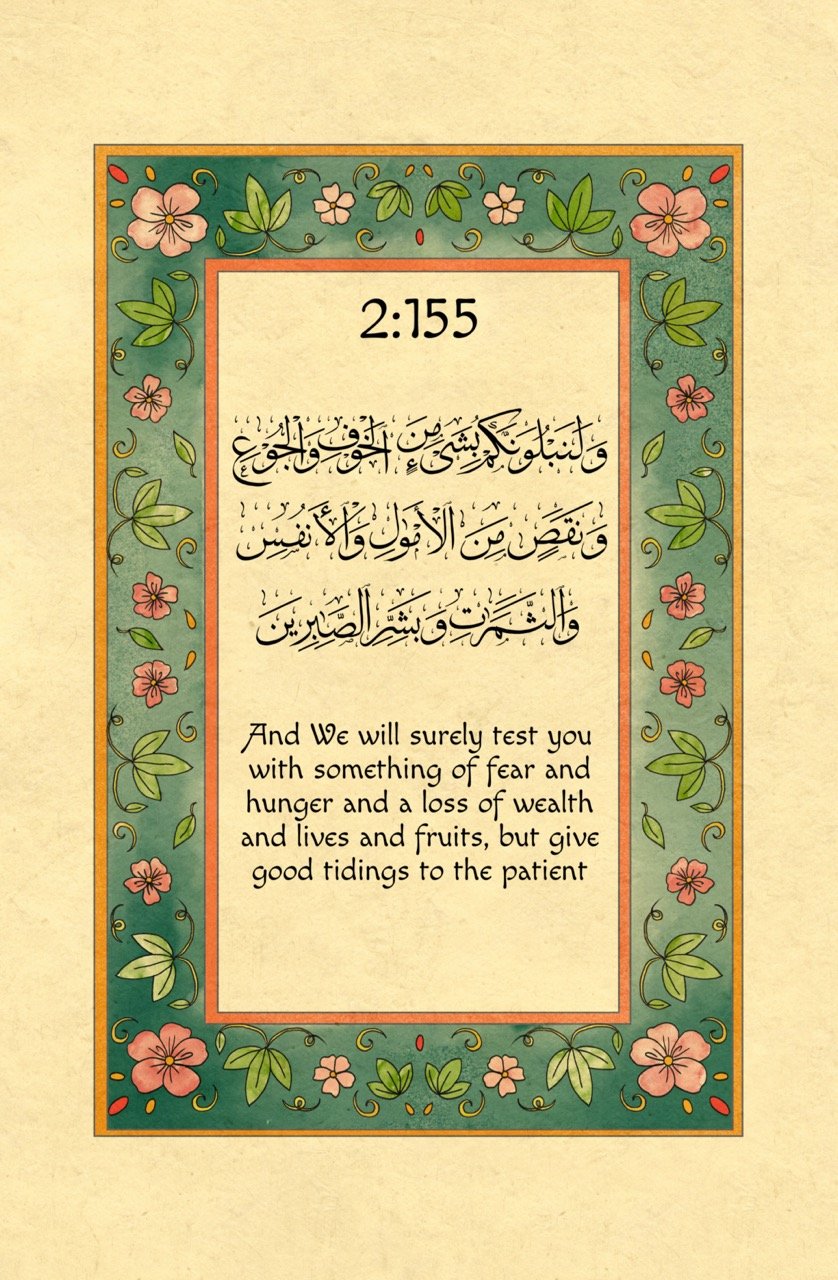 2:155
وَلَنَبْلُوَنَّكُم بِشَىْءٍ مِنَ الْخَوْفِ وَالْجُوعِ
وَنَقْصٍ مِنَ الْأَمْوَٰلِ وَالْأَنفُسِ
وَالثَّمَرَٰتِ وَبَشِّرِ الصَّابِرِينَ
And We will surely test you
with something of fear and
hunger and a loss of wealth
and lives and fruits, but give
good tidings to the patient